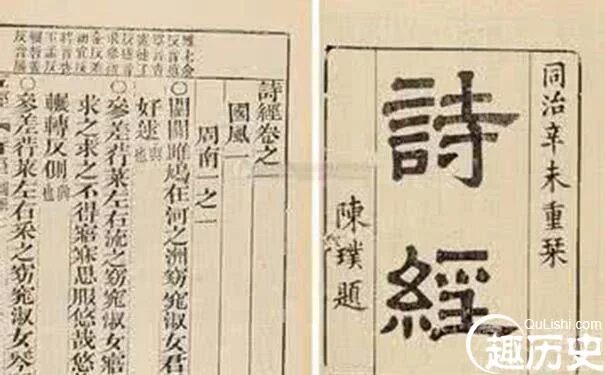 同治辛未重栞
詩經
陳璞題
詩經卷之一
國風一
周南一之一
○關關雎鳩在河之洲窈窕淑女君
好逑興也
○參差荇菜左右流之窈窕淑女寤
求之求之不得寤寐思服悠哉悠
輾轉反側興也
○參差荇菜左右采之窈窕淑女琴
QuLishi.com
趣历史